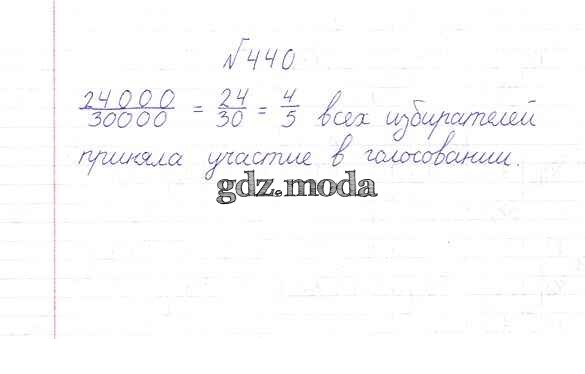 №440
24000/30000 = 24/30 = 4/5 всех избирателей
приняла участие в голосовании.
gdz.moda